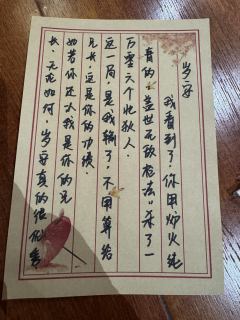 岁安
我看到了，你用炉火纯
青的“盖世无敌枪法”杀了一
万零六个北狄人．
这一局，是我输了，不用算给
兄长，这是你的功绩．
如若你还认我是你的兄
长，无论如何，岁安真的很优秀